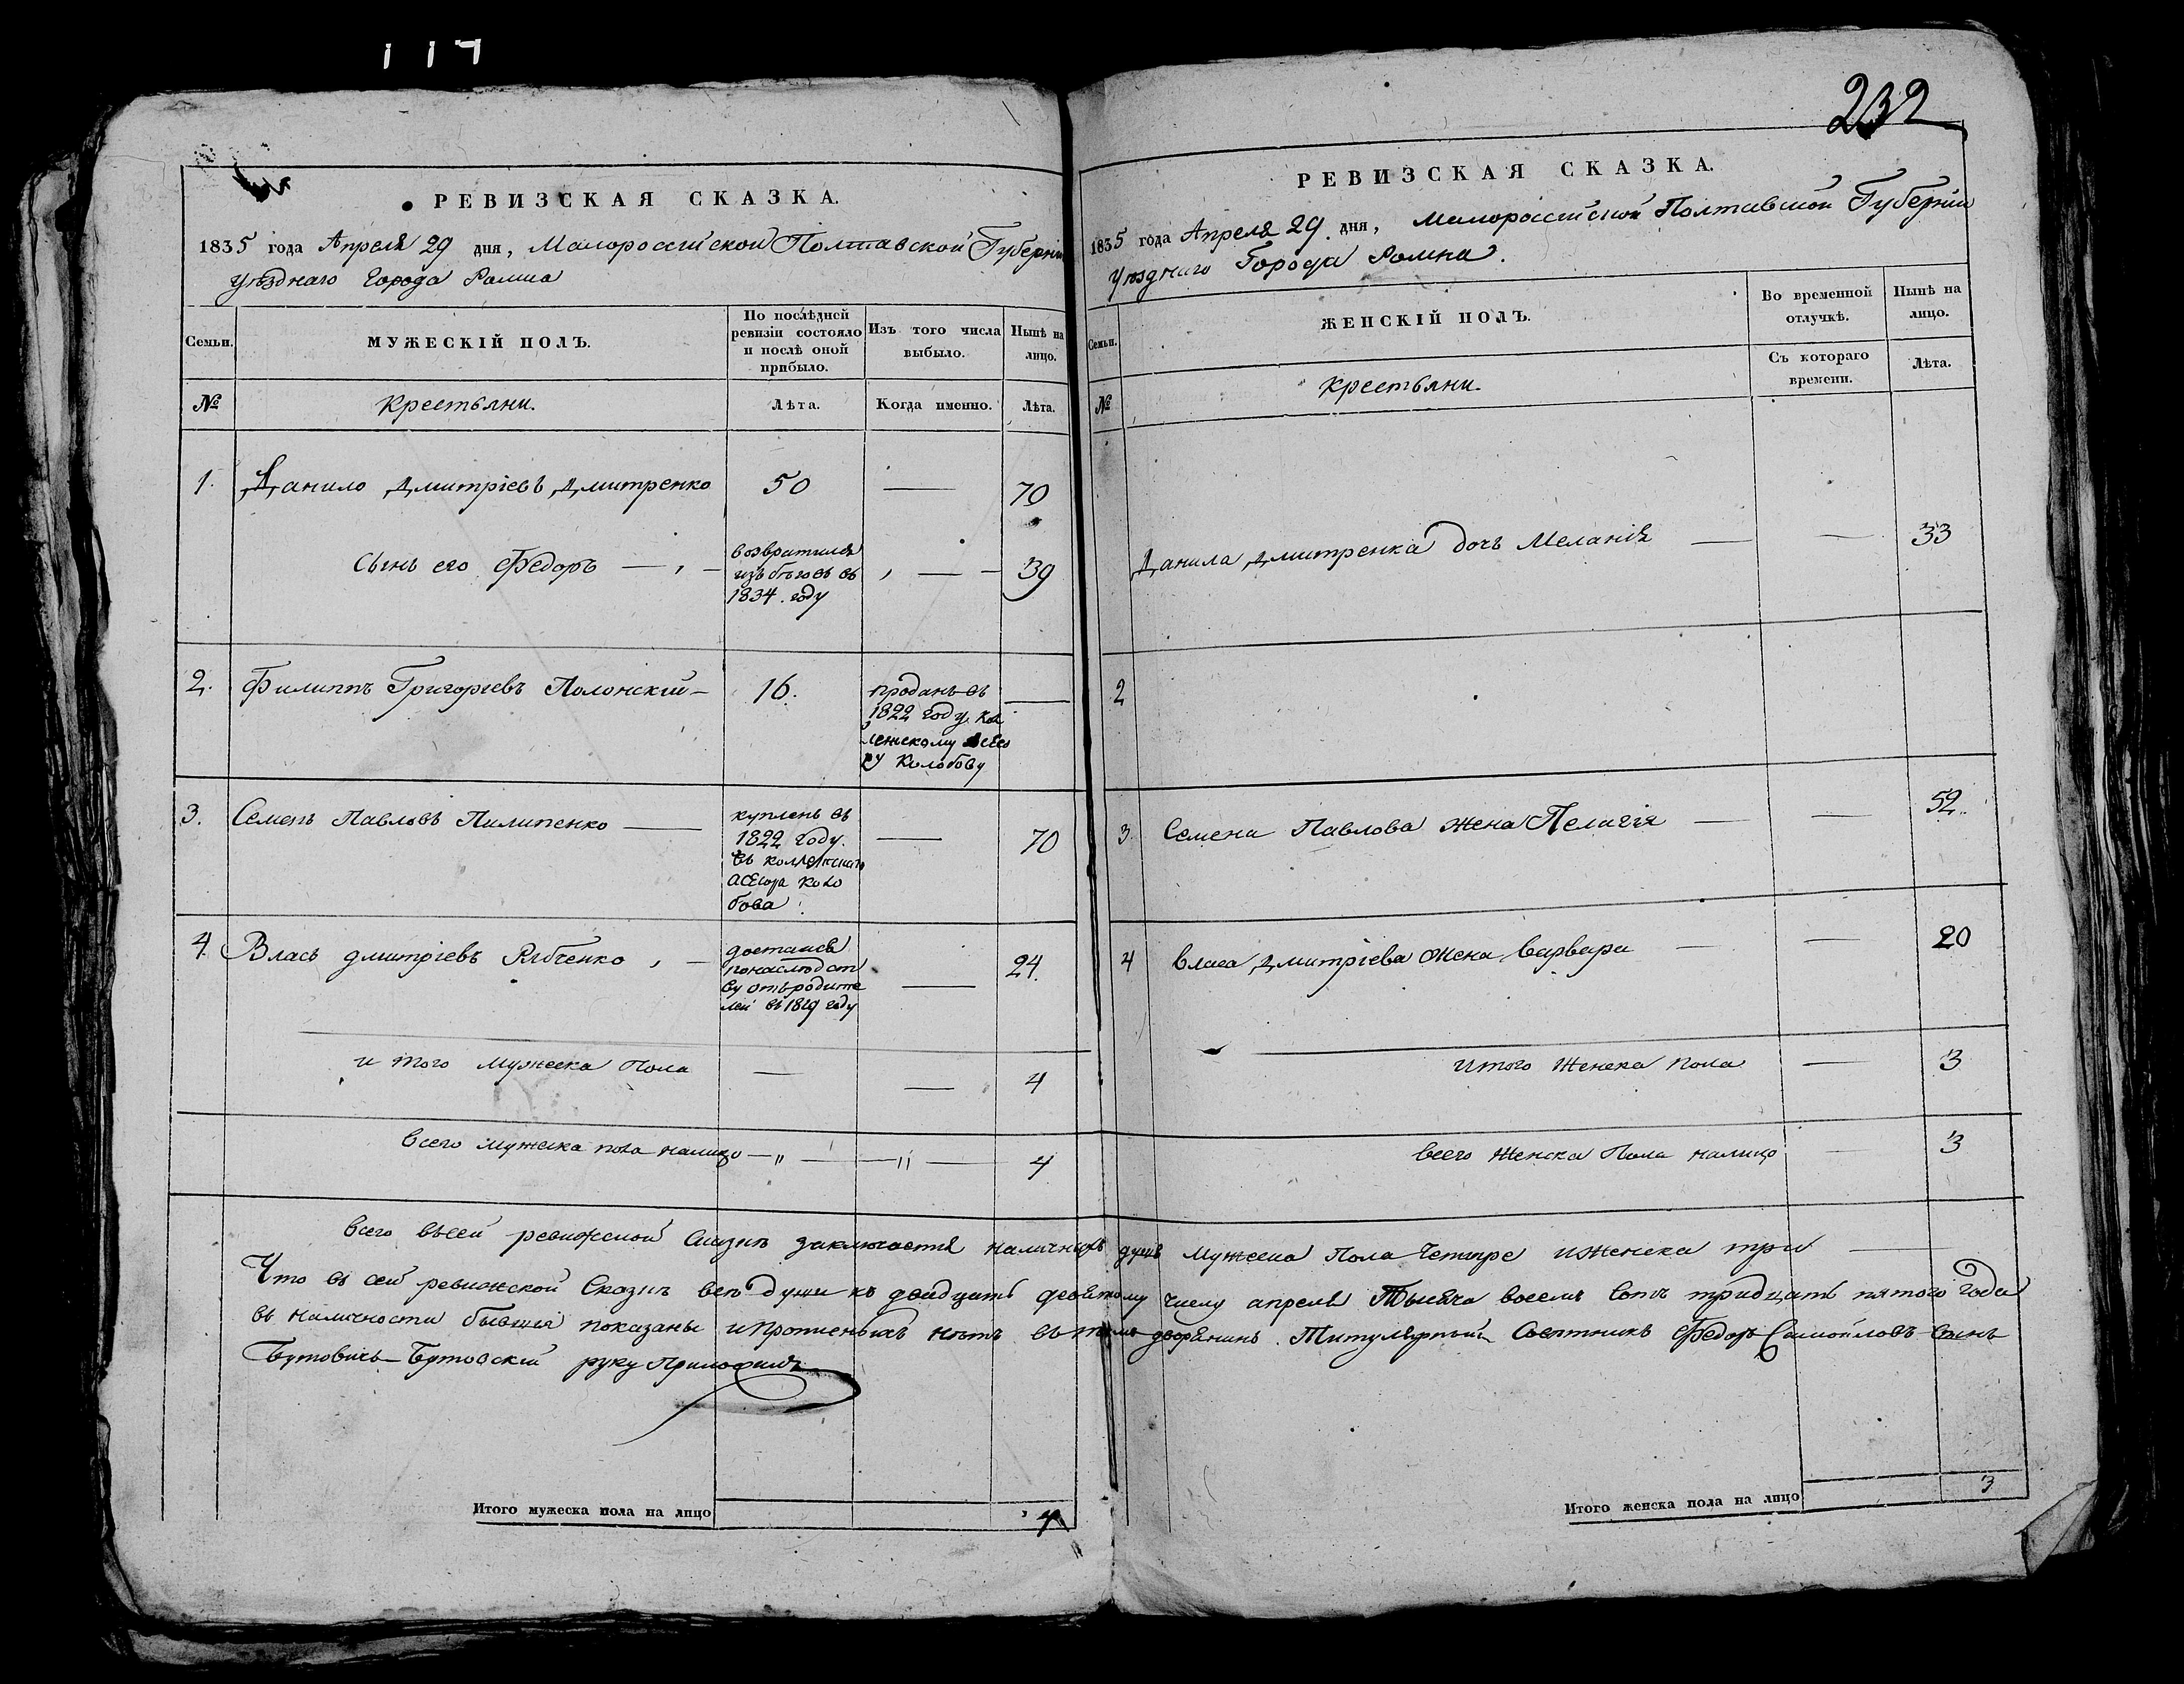 117
РЕВИЗСКАЯ СКАЗКА.
1835 года Апреля 29 дня, Малороссійской Полтавской Губерніи
уѣзднаго города Ромна
Семьи.
МУЖЕСКІЙ ПОЛЪ.
По послѣдней
ревизіи состояло
и послѣ оной
прибыло.
Изъ того числа
выбыло.
Нынѣ на
лицо.
№
Крестьяни.
Лѣта.
Когда именно.
Лѣта.
1. Данило Дмитріевъ Дмитренко 50 — 70
сынъ его Федоръ — возвратился
изъ бѣговъ въ
1834. году
— 39
2. Филиппъ Григоріевъ Полонскій — 16.
проданъ въ
1822 году кол
лежскому асесо
ру Колобову
—
3. Семенъ Павловъ Пилипенко —
купленъ въ
1822 году.
въ коллежскаго
асесора Коло
бова
— 70
4. Власъ Дмитріевъ Рябченко, —
достался
понаслѣдст
ву отъ родите
лей въ 1829 году
— 24.
и того мужеска пола — — 4
всего мужеска пола налицо —„— —„— 4
232
РЕВИЗСКАЯ СКАЗКА.
1835 года Апреля 29 дня, Малороссійской Полтавской Губерніи
уѣзднаго Города Ромна.
Семьи.
ЖЕНСКІЙ ПОЛЪ.
Во временной
отлучкѣ.
Нынѣ на
лицо.
№
Крестьяни.
Съ котораго
времени.
Лѣта.
Данила Дмитренка дочь Меланія — — 33
2
3. Семена Павлова жена Пелагія — — 52.
4 Власа Дмитріева жена Варвара — — 20
итого женска пола — 3
всего женска пола налицо — 3
всего въсей ревижской сказкѣ заключается наличныхъ душъ мужеска пола четыре иженска три —
Что въ сей ревижской сказкѣ всѣ души къ двадцать девятому числу апреля тысяча восемь сотъ тридцать пятого года
въ наличности бывшія показаны ипрописныхъ нѣтъ въ томъ дворянинъ. Титулярный Советникъ Федоръ Самойловъ сынъ
Бутовичь-Бутовскій руку приложилъ
Итого мужеска пола на лицо 4
Итого женска пола на лицо 3